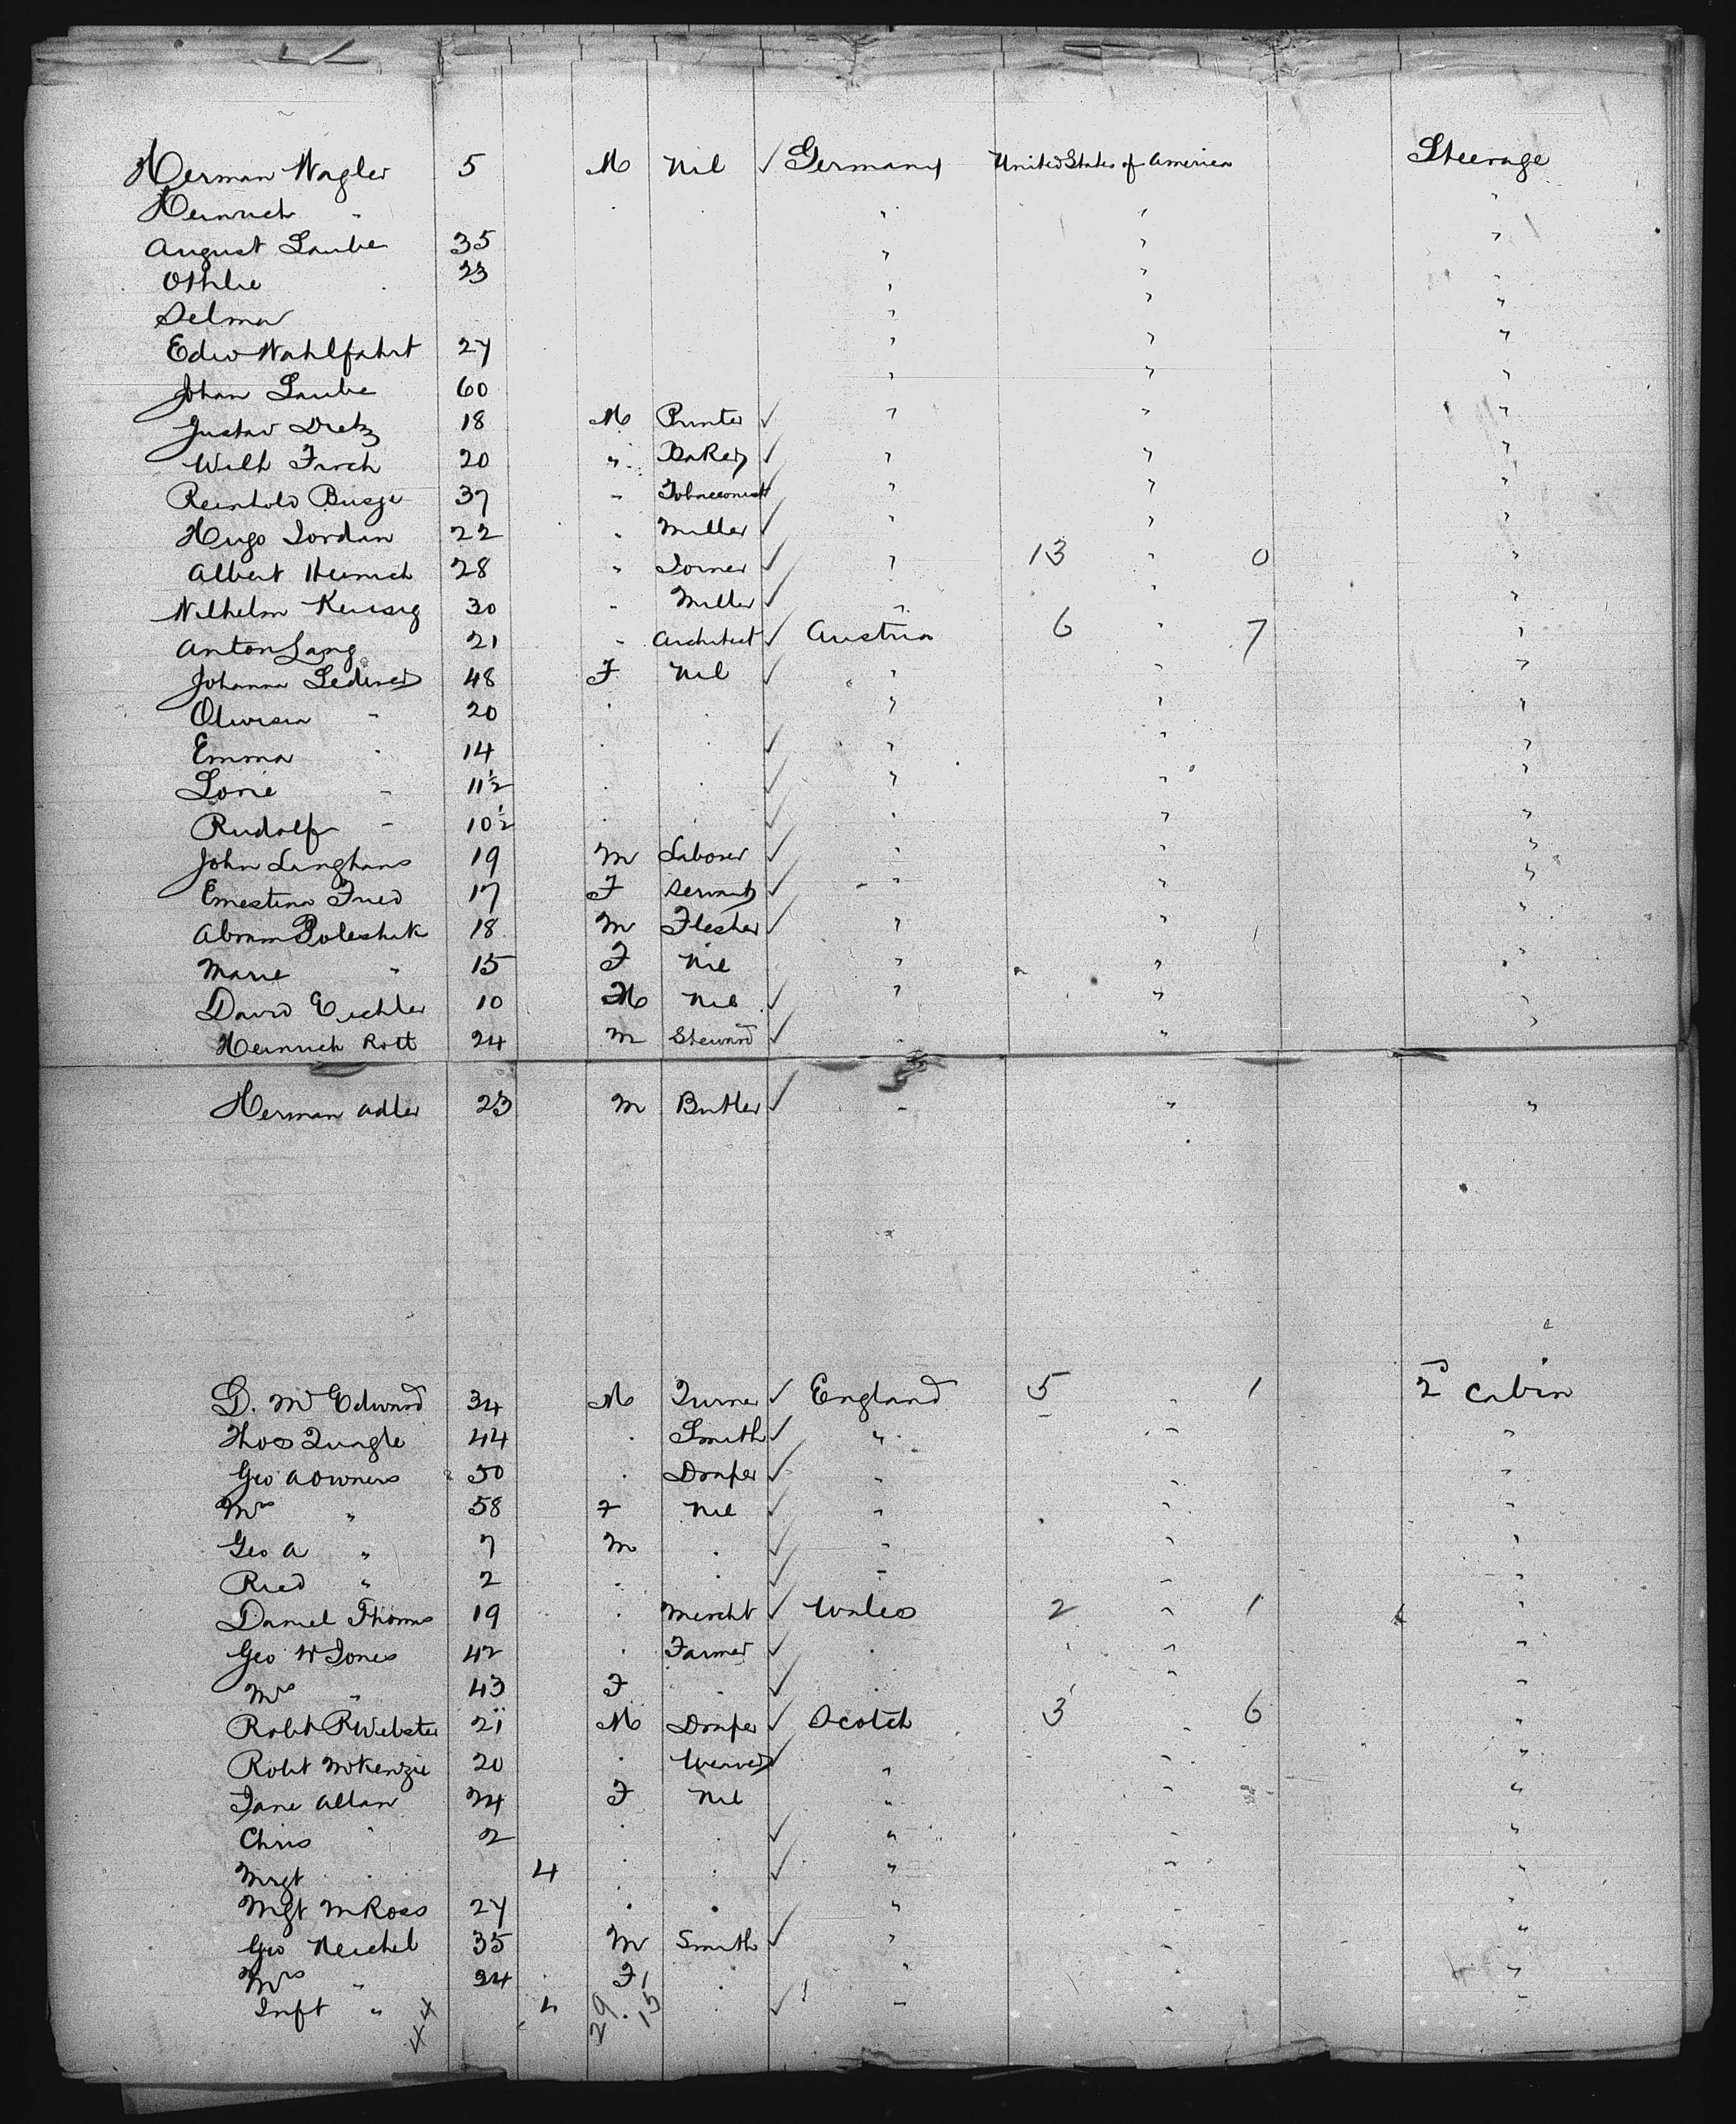 Herman Wagler 5 M Nil ✓ Germany United States of America Steerage
Heinrich " " " "
August Laube 35 " " "
Othlie 23 " " "
Selma " " "
Edw Wahlfahrt 27 " " "
Johan Laube 60 " " "
Gustav Dietz 18 M Printer ✓ " " "
Wilh Firch 20 " Baker ✓ " " "
Reinhold Busze 37 " Tobacconist " " "
Hugo Jordan 22 " Miller ✓ " " "
Albert Heinrich 28 " Joiner ✓ " 13 " 0 "
Wilhelm 30 " Miller ✓ " " "
Anton Lang 21 " Architect ✓ Austria 6 " 7 "
Johanna Lederer 48 F Nil ✓ " " "
20 " " " " "
Emma " 14 " " ✓ " " "
" 11½ " " ✓ " " "
Rudolf " 10½ " " ✓ " " "
John Langhans 19 M Laborer ✓ " " "
Ernestina Fried 17 F Servant ✓ " " "
Abram Poleshek 18 M Flesher ✓ " " "
Marie " 15 F Nil " " "
David Eichler 10 M Nil ✓ " " "
Heinrich Rott 24 M Steward ✓ " " "
Herman Adler 23 M Butler ✓ " " "
D. McEdward 34 M Turner ✓ England 5 " 1 2d Cabin
Thos 44 " Smith ✓ " " "
Geo A Owners 50 " Draper ✓ " " "
Mrs " 58 F Nil ✓ " " "
Geo A " 7 M " ✓ " " "
" 2 " " ✓ " " "
Daniel Thoms 19 " Mercht ✓ Wales 2 " 1 "
Geo W Jones 42 " Farmer ✓ " " "
Mrs " 43 F " ✓ " " "
Robt R Webster 21 M Draper ✓ Scotch 3 " 6 "
Robt McKenzie 20 " Weaver ✓ " " "
Jane Allan 24 F Nil " " "
Chris " 2 " " ✓ " " "
Mrgt " 4 " " ✓ " " "
Mgt McRoss 27 " " " " "
Geo Neichel 35 M Smith ✓ " " "
Mrs " 34 F " " " "
Inft " " ✓ " " "
44 29.15